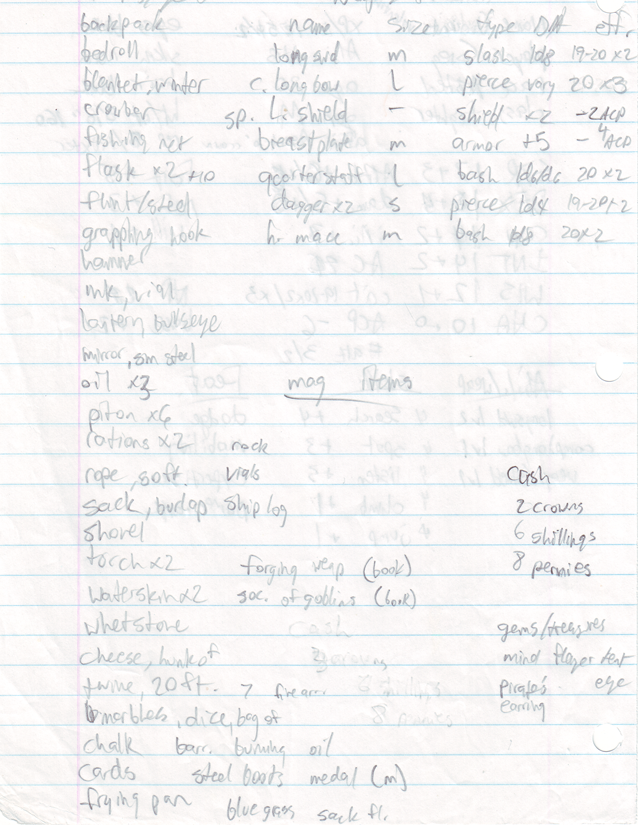 backpack name size type DM eff.
bedroll longswd m slash 1d8 19-20 x2
blanket, winter c. longbow l pierce vary 20 x3
crowbar sp. L. shield - shield x2 -2 ACP
fishing net breastplate m armor +5 -4 ACP
flask x2 +10 qcorterstaff l bash 1d6/d6 20 x2
flint/steel dagger x2 s pierce 1d4 19-20 x2
grappling hook hv mace m bash 1d8 20x2
hammer
ink, vial
lantern, bullseye
mirror, sm steel
oil x3 mag items
piton x6
rations x2 rock
rope, 50ft. vials cash
sack, burlap ship log 2 crowns
shovel 6 shillings
torch x2 forging weap (book) 8 pennies
waterskin x2 soc. of goblins (book)
whetstone gems/treasures
cheese, hunk of mind flayer tent
twine, 20 ft. 7 firearr. pirate's eye
marbles, dice, bag of earring
chalk barr. burning oil
cards steel boots medal (m)
frying pan blue grass sack fl.